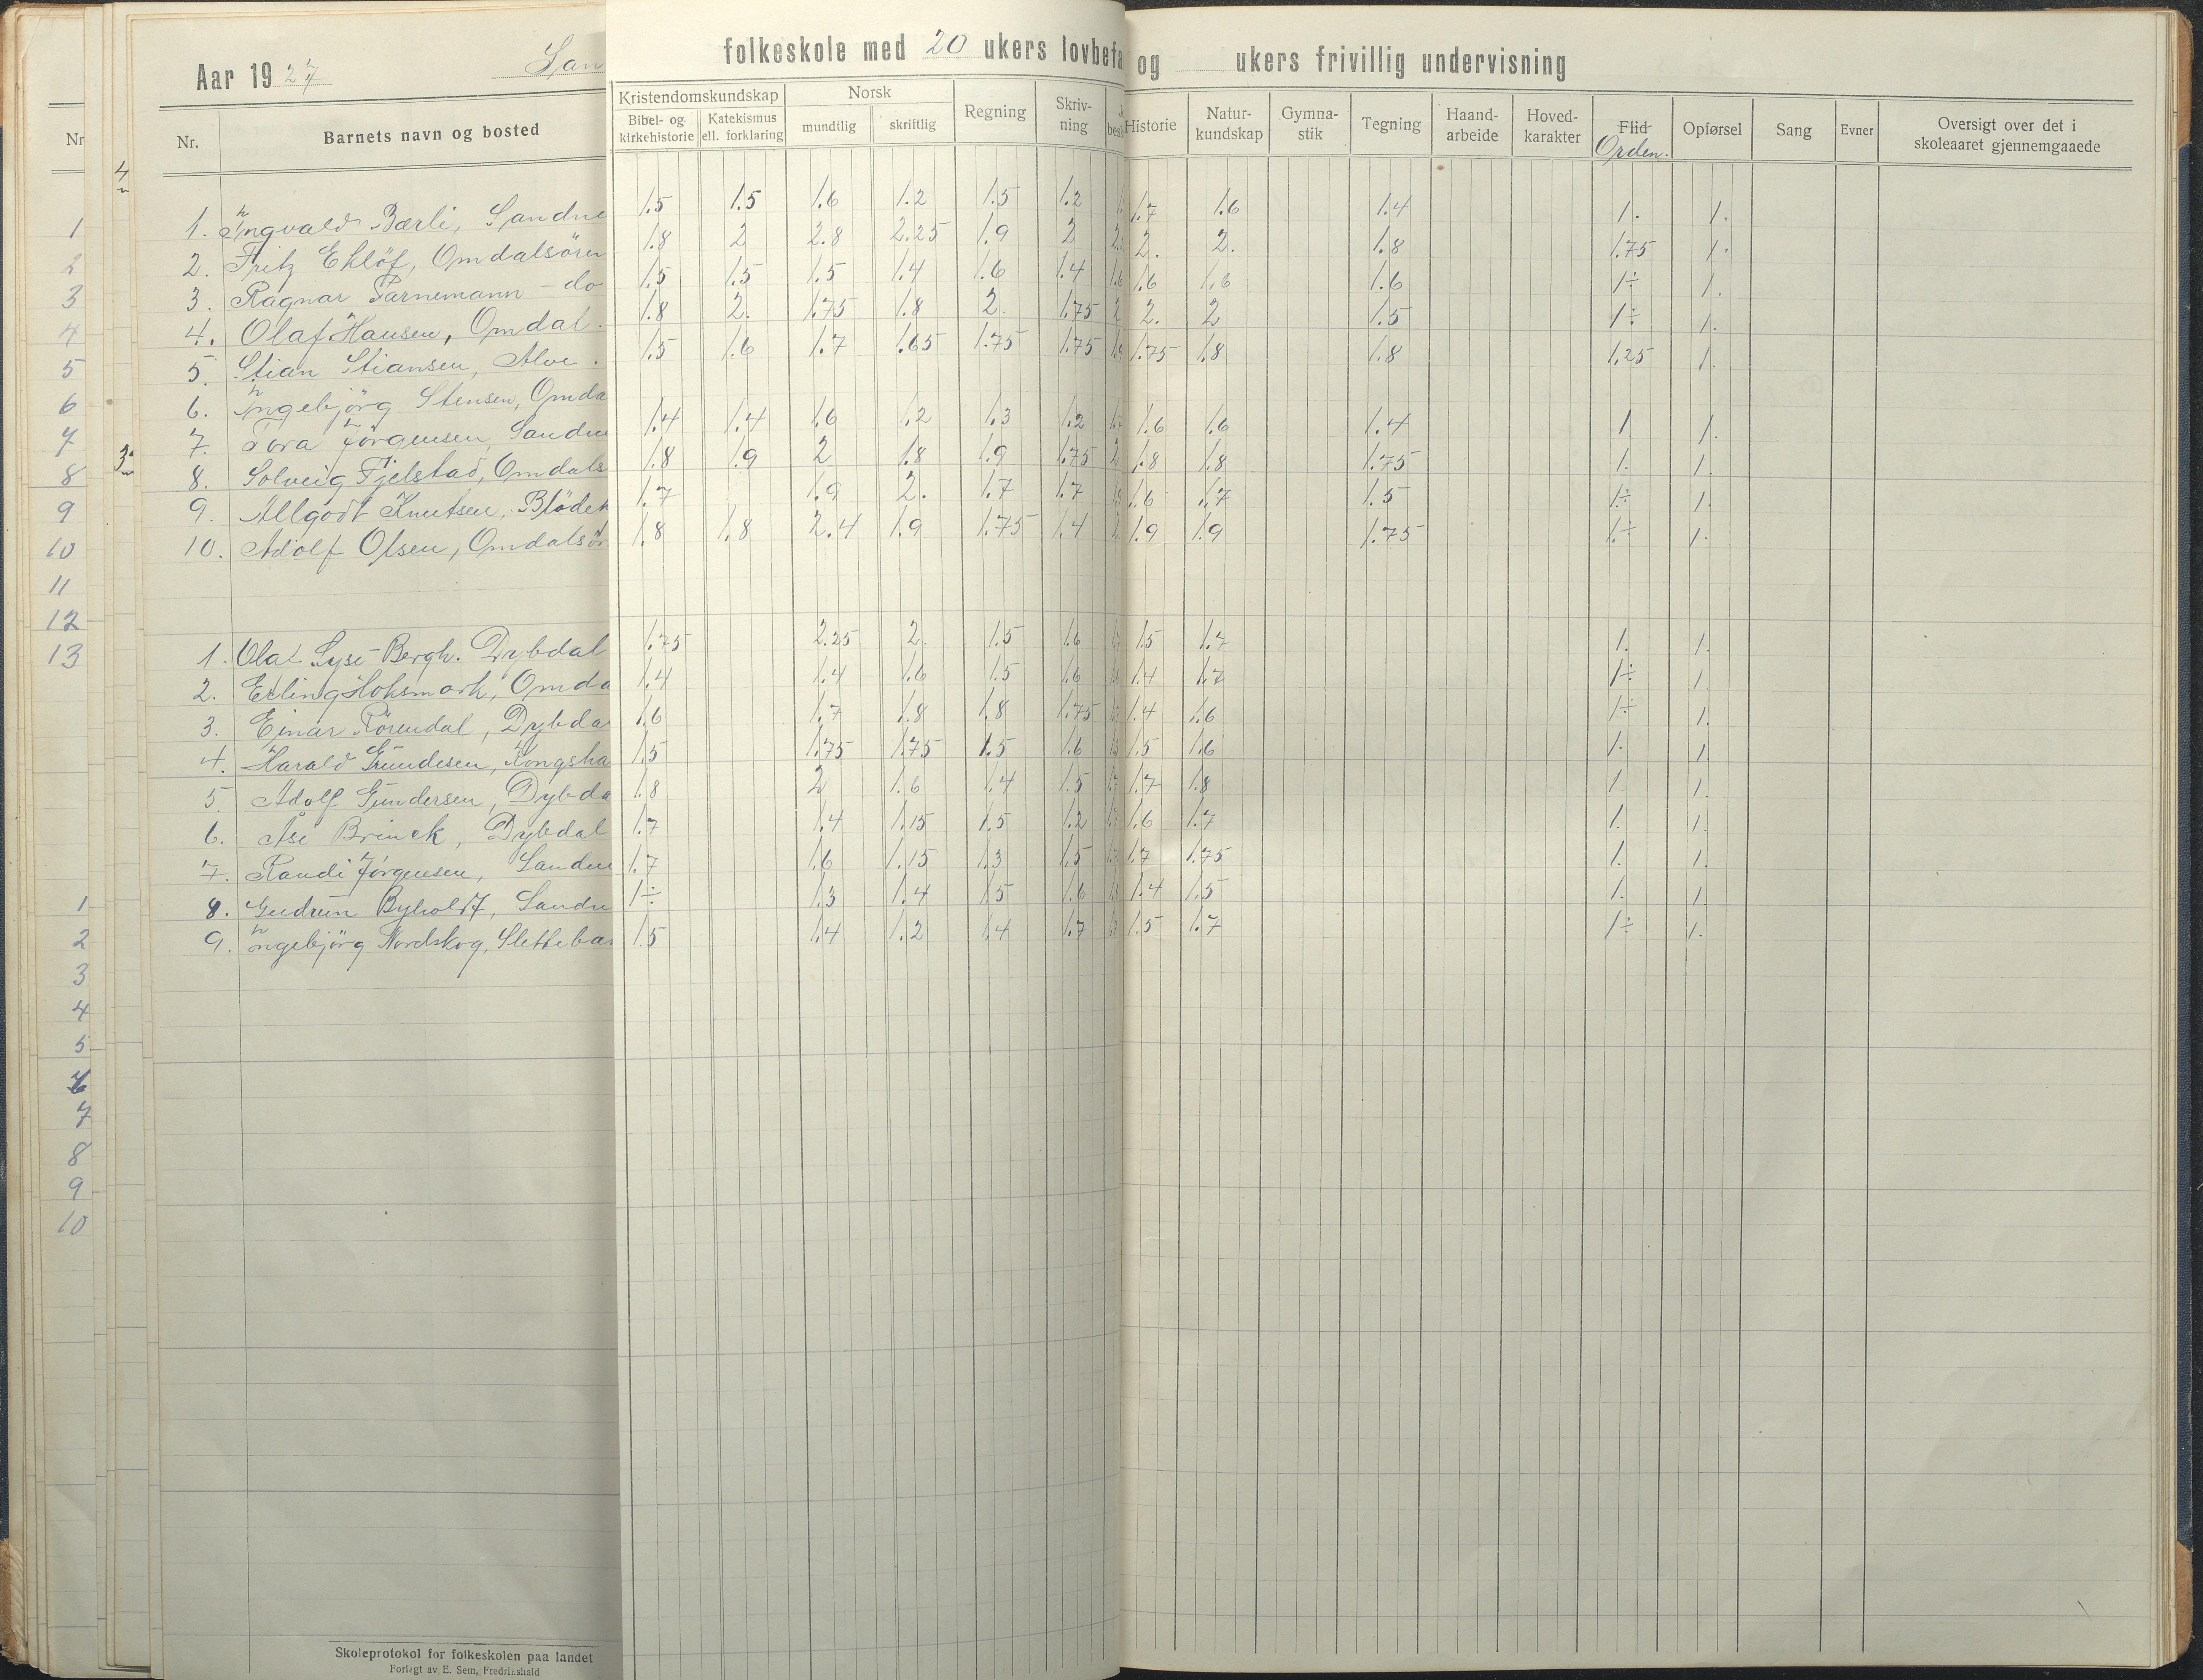 Aar 1927 San folkeskole med 20 ukers lovbefa og ukers frivillig undervisning
Nr. Nr. Barnets navn og bosted Kristendomskundskap Norsk Regning Skriv-ning Historie Natur-kundskap Gymna-stik Tegning Haand-arbeide Hoved-karakter Flid Orden. Opførsel Sang Evner Oversigt over det i skoleaaret gjennemgaaede
Bibel- og kirkehistorie Katekismus ell. forklaring mundtlig skriftlig
4
1. Ingvald Bærli, Sandne 1.5 1.5 1.6 1.2 1.5 1.2 1.7 1.6 1.4 1. 1.
2. Fritz Eklöf, Omdalsören 1.8 2 2.8 2.25 1.9 2 2. 2. 1.8 1.75 1.
3. Ragnar Parnemann - do 1.5 1.5 1.5 1.4 1.6 1.4 1.6 1.6 1.6 1.6 1÷ 1.
4. Olaf Hansen, Omdal. 1.8 2. 1.75 1.8 2. 1.75 2 2. 2 1.5 1÷ 1.
5. Stian Stiansen, Alve. 1.5 1.6 1.7 1.65 1.75 1.75 1.9 1.75 1.8 1.8 1.25 1.
6. Ingebjörg Stensen, Omda
7. Tora Jörgensen, Sandne 1.4 1.4 1.6 1.2 1.3 1.2 1.6 1.6 1.4 1. 1.
3
8. Solveig Fjelstad, Omdals 1.8 1.9 2 1.8 1.9 1.75 2 1.8 1.8 1.75 1. 1.
9. Allgodt Knutsen, Blödek 1.7 1.9 2. 1.7 1.7 1.6 1.7 1.5 1÷ 1.
10. Adolf Olsen, Omdalsör 1.8 1.8 2.4 1.9 1.75 1.4 2 1.9 1.9 1.75 1÷ 1.
1. Olaf Syse-Bergh. Dybdal 1.75 2.25 2. 1.5 1.6 1.5 1.7 1. 1.
2. Erling Hoksmork, Omda 1.4 1.4 1.6 1.5 1.6 1.4 1.7 1÷ 1.
3. Einar Rörendal, Dybda 1.6 1.7 1.8 1.8 1.75 1.7 1.4 1.6 1÷ 1.
4. Harald Grundesen, Kongsha 1.5 1.75 1.75 1.5 1.6 1.5 1.6 1. 1.
5. Adolf Gundersen, Dybda 1.8 2 1.6 1.4 1.5 1.7 1.7 1.8 1. 1.
6. Åse Brinck, Dybdal 1.7 1.4 1.15 1.5 1.2 1.7 1.6 1.7 1. 1.
7. Randi Jörgensen, Sandne 1.7 1.6 1.15 1.3 1.5 1.7 1.75 1. 1.
8. Gudrun Byholdt, Sandn 1÷ 1.3 1.4 1.5 1.6 1.4 1.5 1. 1.
9. Ingebjörg Nordskog, Sletteba 1.5 1.4 1.2 1.4 1.7 1.7 1.5 1.7 1÷ 1.
1
2
3
4
5
6
7
8
9
10
11
12
13
1
2
3
4
5
6
7
8
9
10
Skoleprotokol for folkeskolen paa landet
Forlagt av E. Sem, Fredrikshald